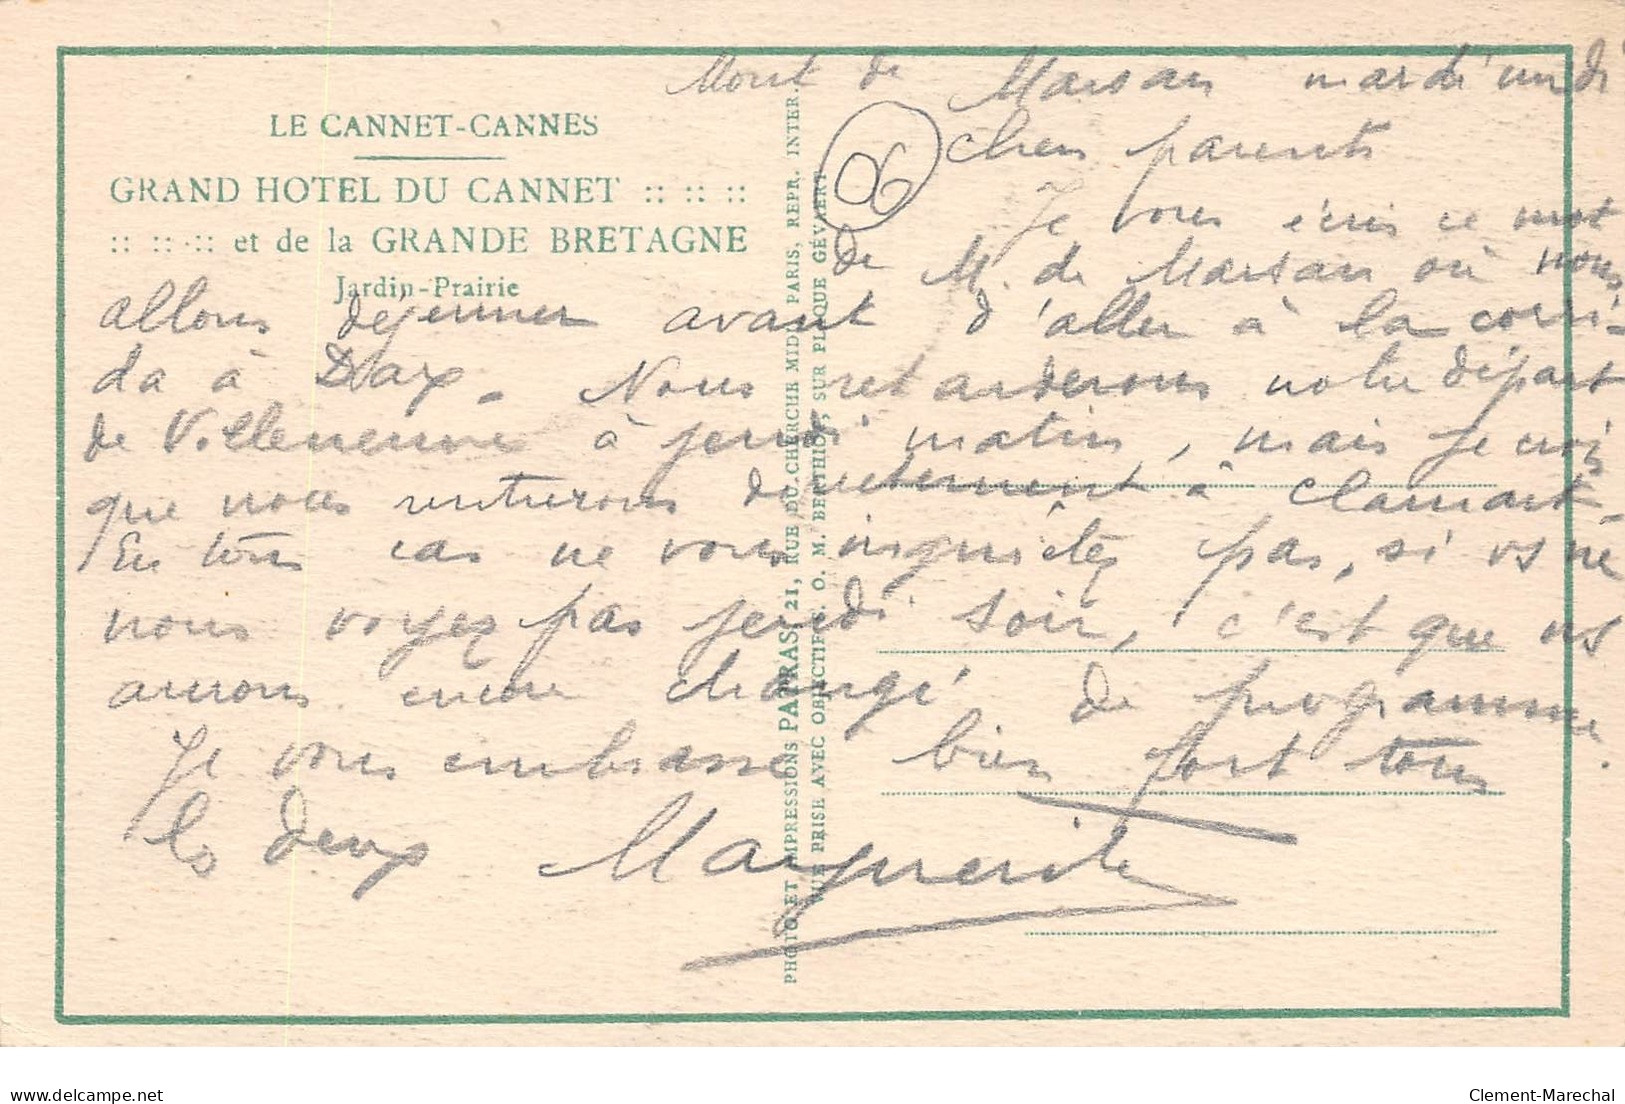 LE CANNET-CANNES
GRAND HOTEL DU CANNET :: :: ::
:: :: :: et de la GRANDE BRETAGNE
Jardin-Prairie
PHOTO ET IMPRESSIONS PAPRAS, 21, RUE DU CHERCHE MIDI, PARIS, REPR. INTER.
VUE PRISE AVEC OBJECTIF S. O. M. BERTHIOT, SUR PLAQUE GÉVAERT
06
Mont de Marsan mardi
Chers parents
Je vous écris ce mot
de M. de Marsan où nous
allons déjeuner avant d'aller à la corri-
da à Dax. Nous retarderons notre départ
de Villeneuve à jeudi matin, mais je crois
que nous rentrerons directement à Clamart.
En tous cas ne vous inquiétez pas, si vs ne
nous voyez pas jeudi soir, c'est que ns
aurons encore changé de programme.
Je vous embrasse bien fort tous
les deux Marguerite
delcampe.net
Clement-Marechal